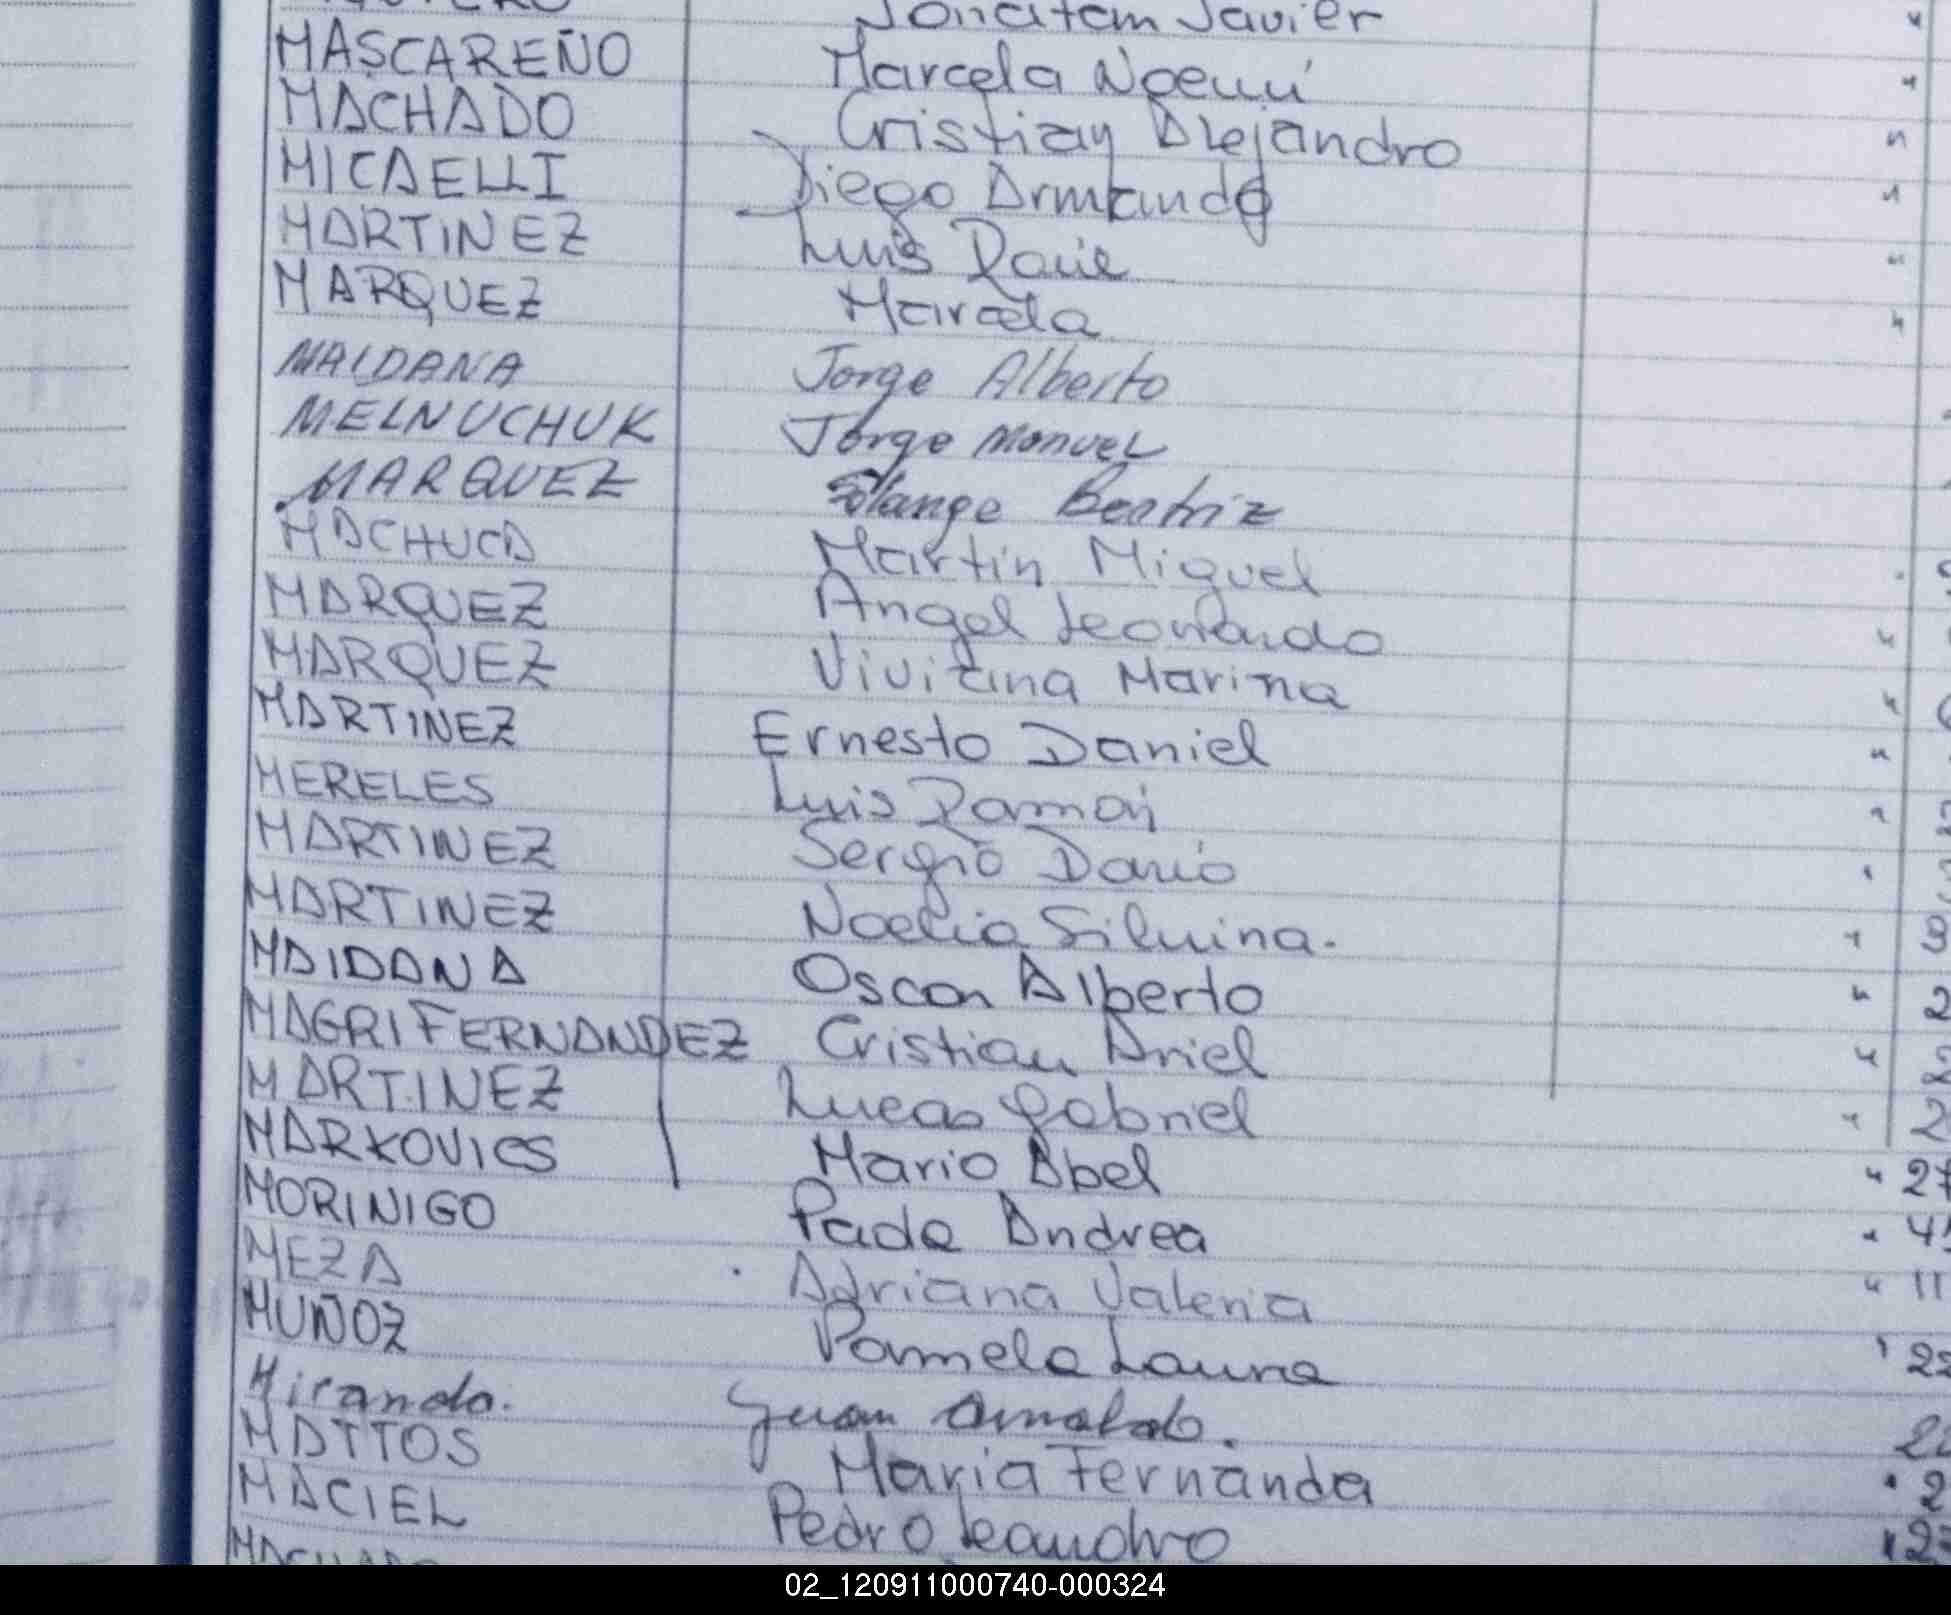 Jonatam Javier
MASCAREÑO Marcela Noemí "
MACHADO Cristian Alejandro "
MICAELLI Diego Armando "
MARTINEZ Luis "
MARQUEZ Marcela "
MAIDANA Jorge Alberto
MELNUCHUK Jorge Manuel
MARQUEZ Solange Beatriz
MACHUCA Martín Miguel
MARQUEZ Angel Leonardo "
MARQUEZ Viviana Marina "
MARTINEZ Ernesto Daniel "
MERELES Luis Ramón "
MARTINEZ Sergio Dario "
MARTINEZ Noelia Silvina. "
MAIDANA Oscar Alberto " 2
MAGRI FERNANDEZ Cristian Ariel " 2
MARTINEZ Lucas Gabriel " 2
MARKOVICS Mario Abel " 27
MORINIGO Andrea "
MEZA Adriana Valeria " 11
MUÑOZ Pamela Laura " 22
Miranda. Juan Arnaldo. 22
MATTOS Maria Fernanda " 2
MACIEL Pedro Leandro " 2
02_120911000740-000324